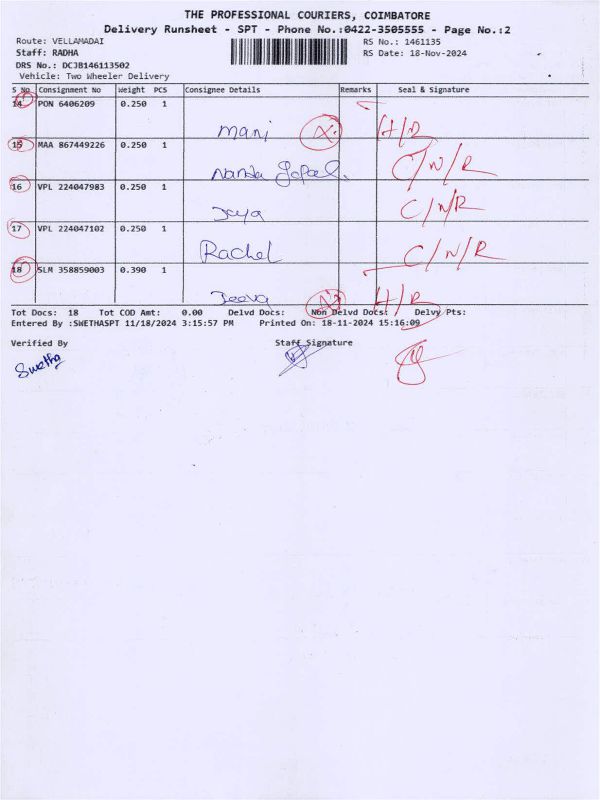 THE PROFESSIONAL COURIERS, COIMBATORE
Delivery Runsheet - SPT - Phone No.:0422-3505555 - Page No.:2
Route: VELLAMADAI RS No.: 1461135
Staff: RADHA RS Date: 18-Nov-2024
DRS No.: DCJB146113502
Vehicle: Two Wheeler Delivery
S No Consignment No Weight PCS Consignee Details Remarks Seal & Signature
14 PON 6406209 0.250 1
mani H/R
15 MAA 867449226 0.250 1
Nanda Gopal. C/N/R
16 VPL 224047983 0.250 1
Jaya C/N/R
17 VPL 224047102 0.250 1
Rachel C/N/R
18 SLM 358859003 0.390 1
Jeeva H/R
Tot Docs: 18 Tot COD Amt: 0.00 Delvd Docs: Non Delvd Docs: Delvy Pts:
Entered By :SWETHASPT 11/18/2024 3:15:57 PM Printed On: 18-11-2024 15:16:09
Verified By Staff Signature
Swetha